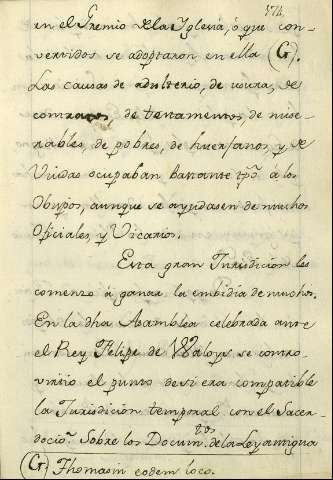 574
en el Gremio de la Yglesia, ó que con-
vertidos se adoptaron en ella (G).
Las causas de adulterio, de usura, de
contratos, de testamentos, de mise-
rables, de pobres, de huerfanos, y de
Viudas ocupaban bastante tpõ à los
Obispos, aunque se ayudasen de muchos
Oficiales, y Vicarios.
Esta gran Jurisdicion les
comenzo á ganar la embidia de muchos.
En la dha Asamblea celebrada ante
el Rey Felipe de Waloys se contro
virtió el punto de si era compatible
la Jurisdicion temporal con el Sacer-
docio. Sobre los Docum.tos de la Ley antigua
(G) Thomasin eodem loco.